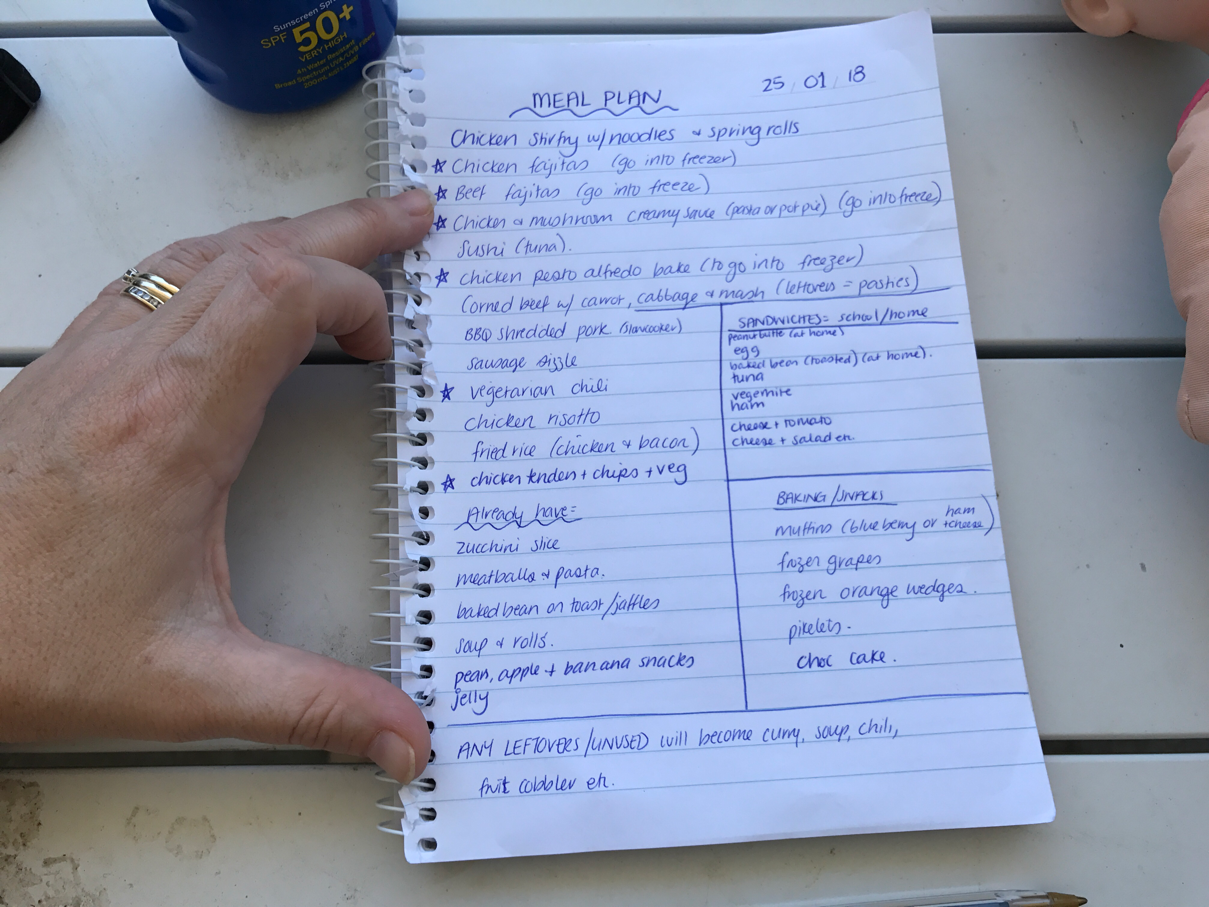 Sunscreen Spr
SPF 50+
VERY HIGH
4h Water Resistant
Broad Spectrum UVA/UVB Filters
MEAL PLAN
25/01/18
Chicken stirfry w/noodles & spring rolls
☆ Chicken fajitas (go into freezer)
☆ Beef fajitas (go into freeze)
☆ Chicken & mushroom creamy sauce (pasta or pot pie) (go into freeze)
Sushi (tuna).
☆ chicken pesto alfredo bake (to go into freezer)
Corned beef w/ carrot, cabbage & mash (leftovers = pasties)
BBQ shredded pork (slowcooker)
sausage sizzle
☆ vegetarian chili
chicken risotto
fried rice (chicken & bacon)
☆ chicken tenders + chips + veg
Already have:
zucchini slice
meatballs & pasta.
baked bean on toast/jaffles
soup & rolls.
pear, apple + banana snacks
jelly
SANDWICHES: school/home
peanut butter (at home)
egg
baked bean (toasted) (at home).
tuna
vegemite
ham
cheese + tomato
cheese + salad etc.
BAKING/SNACKS
muffins (blueberry or ham + cheese)
frozen grapes
frozen orange wedges.
pikelets.
choc cake.
ANY LEFTOVERS/UNUSED will become curry, soup, chili,
fruit cobbler etc.